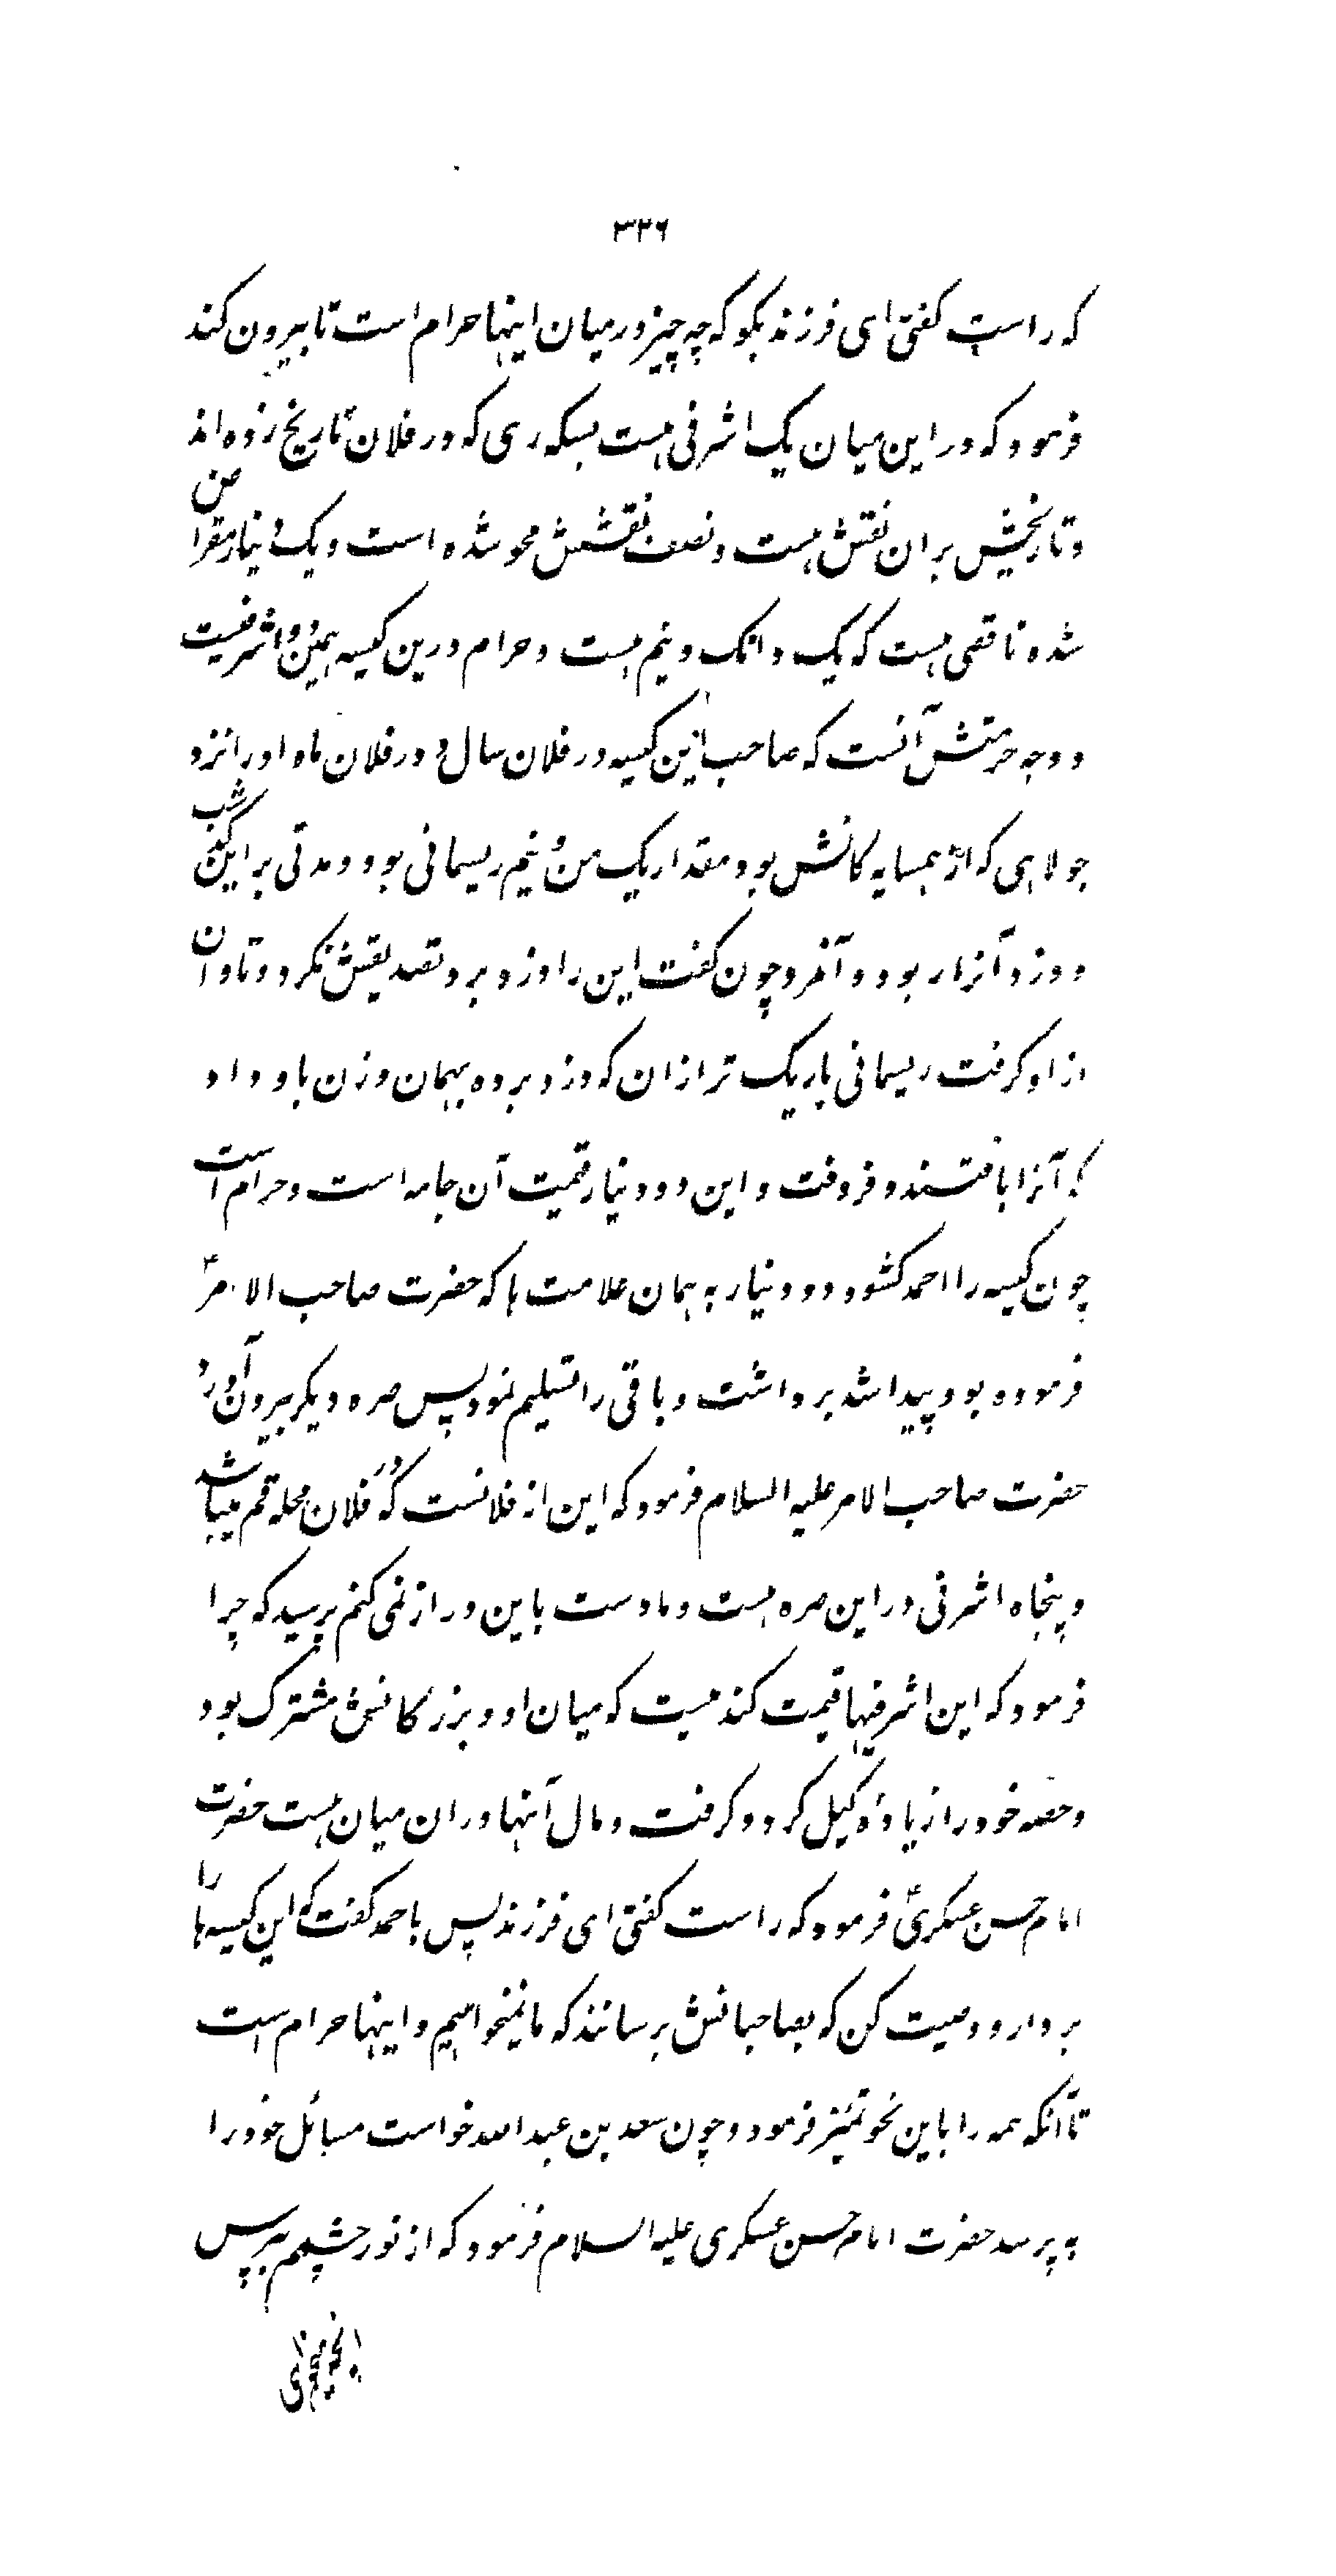 ۳۳۶
که راست کفتی ای فرزند بکو که چه چیز در میان اینها حرام است تا بیرون کند
فرمود که در این میان یک اشرفی هست بسکه ری که در فلان تاریخ زده اند
و تاریخش بران نقش هست و نصف نقشش محو شده است و یک دینار مقراض
شده ناقصی هست که یک دانک و نیم هست و حرام درین کیسه همین دو اشرفیست
و وجه حرمتش آنست که صاحب این کیسه در فلان سال و در فلان ماه او را نزد
جولاهی که از همسایه کانش بود مقدار یک من و نیم ریسمانی بود و مدتی بر این گذشت
و دزد آنرا ربود و آنمرد چون کفت این را دزد برد تصدیقش نکرد و تاوان
از او کرفت ریسمانی باریک تر از ان که دزد برده بهمان وزن باو داد
که آنرا بافتند و فروخت و این دو دینار قیمت آن جامه است و حرام است
چون کیسه را احمد کشود دو دینار به همان علامت ها که حضرت صاحب الامرؑ
فرموده بود پیدا شد برداشت و باقی را تسلیم نمود پس صره دیکر بیرون آورد
حضرت صاحب الامر علیه السلام فرمود که این از فلانست که در فلان محله قم میباشد
و پنجاه اشرفی در این صره هست و ما دست باین دراز نمی کنم پرسید که چرا
فرمود که این اشرفیها قیمت کندمیست که میان او و برزکانش مشترک بود
و حصه خود را زیاده کیل کرد و کرفت و مال آنها دران میان هست حضرت
امام حسن عسکریؑ فرمود که راست کفتی ای فرزند پس باحمد کفت که این کیسه ها را
بردار و وصیت کن که بصاحبانش برسانند که ما نمیخواهیم و اینها حرام است
تا آنکه همه را باین نحو تمیز فرمود و چون سعد بن عبد الله خواست مسائل خود را
به پرسد حضرت امام حسن عسکری علیه السلام فرمود که از نور چشمم بپرس
انچه میخواهی